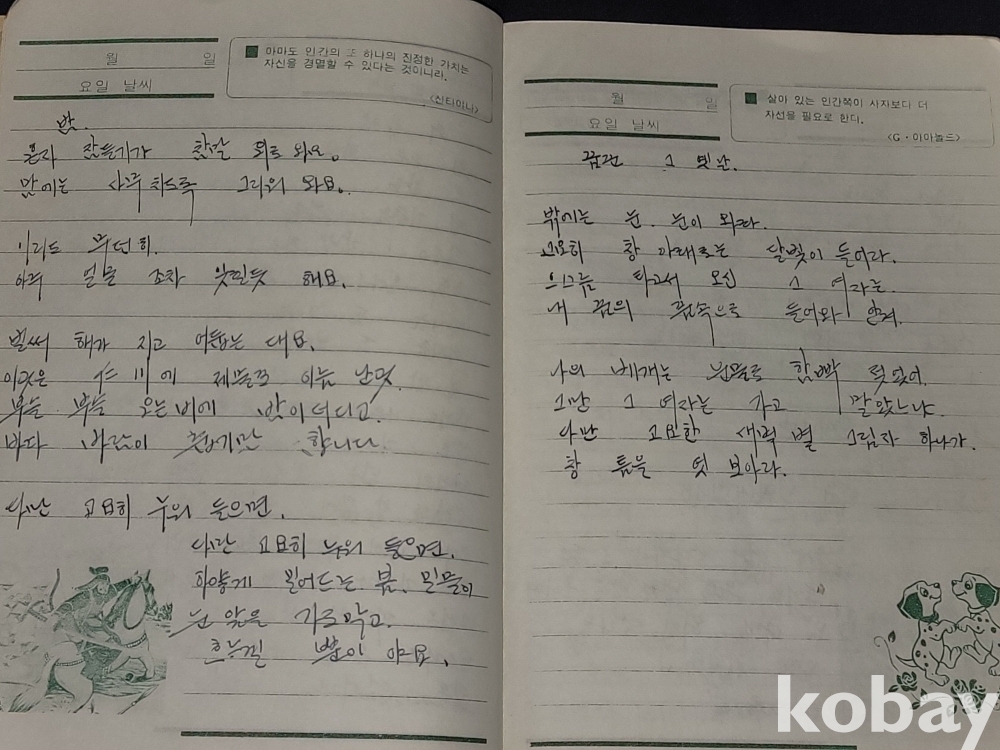 월 일
요일 날씨
마마도 인간의 또 하나의 진정한 가치는
자신을 경멸할 수 있다는 것이니라.
<산티아나>
밤
혼자 잠들기가 참말 외로 와요.
맘에는 사무치도록 그리워 와요.
이리도 무던히.
아주 얼굴 조차 잊힐듯 해요.
벌써 해가 지고 어둡는 대요,
이곳은 仁川에 제물포 이름 난 곳
부슬 부슬 오는 비에 밤이 더디고
바다 바람이 춥기만 합니다
다만 고요히 누워 들으면,
다만 고요히 누워 들으면,
하얗게 밀어드는 봄 밀물이
눈 앞을 가로 막고
흐느낄 뿐이 야요.
월 일
요일 날씨
살아 있는 인간쪽이 사자보다 더
자선을 필요로 한다.
<G·아아놀드>
꿈꾼 그 옛날.
밖에는 눈. 눈이 와라.
고요히 창 아래로는 달빛이 들어라.
으스름 타고서 오신 그 여자는
내 꿈의 품속으로 들어와 안겨.
나의 베개는 눈물로 함빡 젖었어.
그만 그 여자는 가고 말았느냐.
다만 고요한 새벽 별 그림자 하나가.
창 틈을 엿 보아라.
kobay